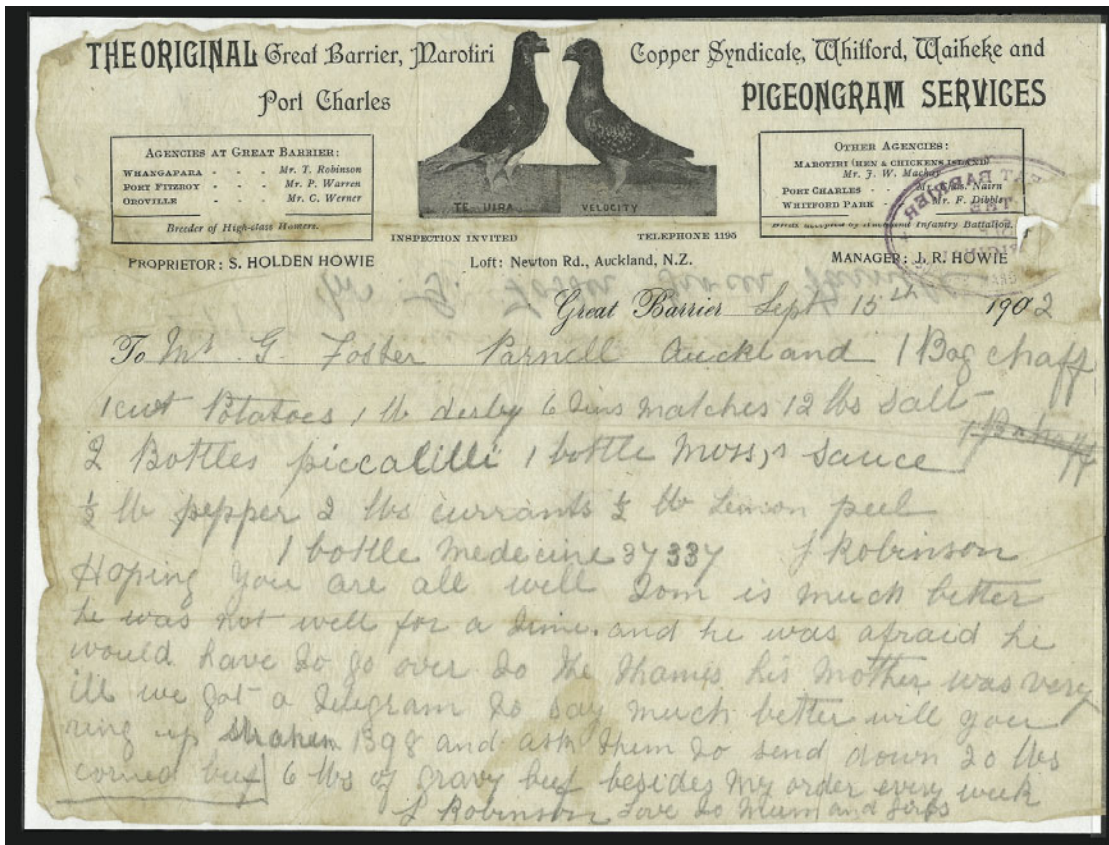 THE ORIGINAL Great Barrier, Marotiri Copper Syndicate, Whitford, Waiheke and
Port Charles PIGEONGRAM SERVICES
AGENCIES AT GREAT BARRIER:
WHANGAPARA - - - Mr. T. Robinson
PORT FITZROY - - - Mr. P. Warren
OROVILLE - - Mr. C. Werner
Breeder of High-class Homers.
OTHER AGENCIES:
MAROTIRI (HEN & CHICKENS ISLAND)
Mr. J. W.
PORT CHARLES - - Nairn
WHITFORD PARK - Mr. F. Dibble
Infantry Battalion.
TE UIRA VELOCITY
INSPECTION INVITED TELEPHONE 1195
PROPRIETOR: S. HOLDEN HOWIE Loft: Newton Rd., Auckland, N.Z. MANAGER: J. R. HOWIE
Great Barrier Sept 15th 1902
To Mr G. Foster Parnell Auckland 1 Bag chaff
1 cwt Potatoes 1 lb derby 6 tins matches 12 lbs Salt
2 Bottles piccalilli 1 bottle Moss,s sauce
½ lb pepper 2 lbs currants ½ lb Lemon peel
1 bottle medecine 37337 Robinson
Hoping you are all well Tom is much better
he was not well for a time. and he was afraid he
would have to go over to the thames his mother was very
ill we got a telegram to say much better will you
ring up 1398 and ask them to send down 20 lbs
corned beef 6 lbs of gravy beef besides my order every week
Robinson Love to Mum and